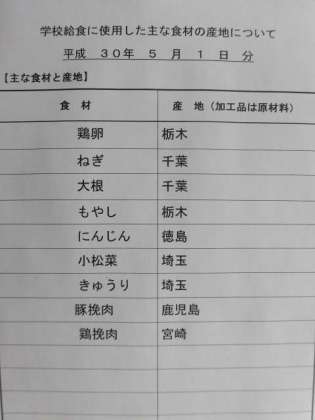 学校給食に使用した主な食材の産地について
平成 30年 5 月 1 日 分
【主な食材と産地】
食 材 産 地（加工品は原材料）
鶏卵 栃木
ねぎ 千葉
大根 千葉
もやし 栃木
にんじん 徳島
小松菜 埼玉
きゅうり 埼玉
豚挽肉 鹿児島
鶏挽肉 宮崎